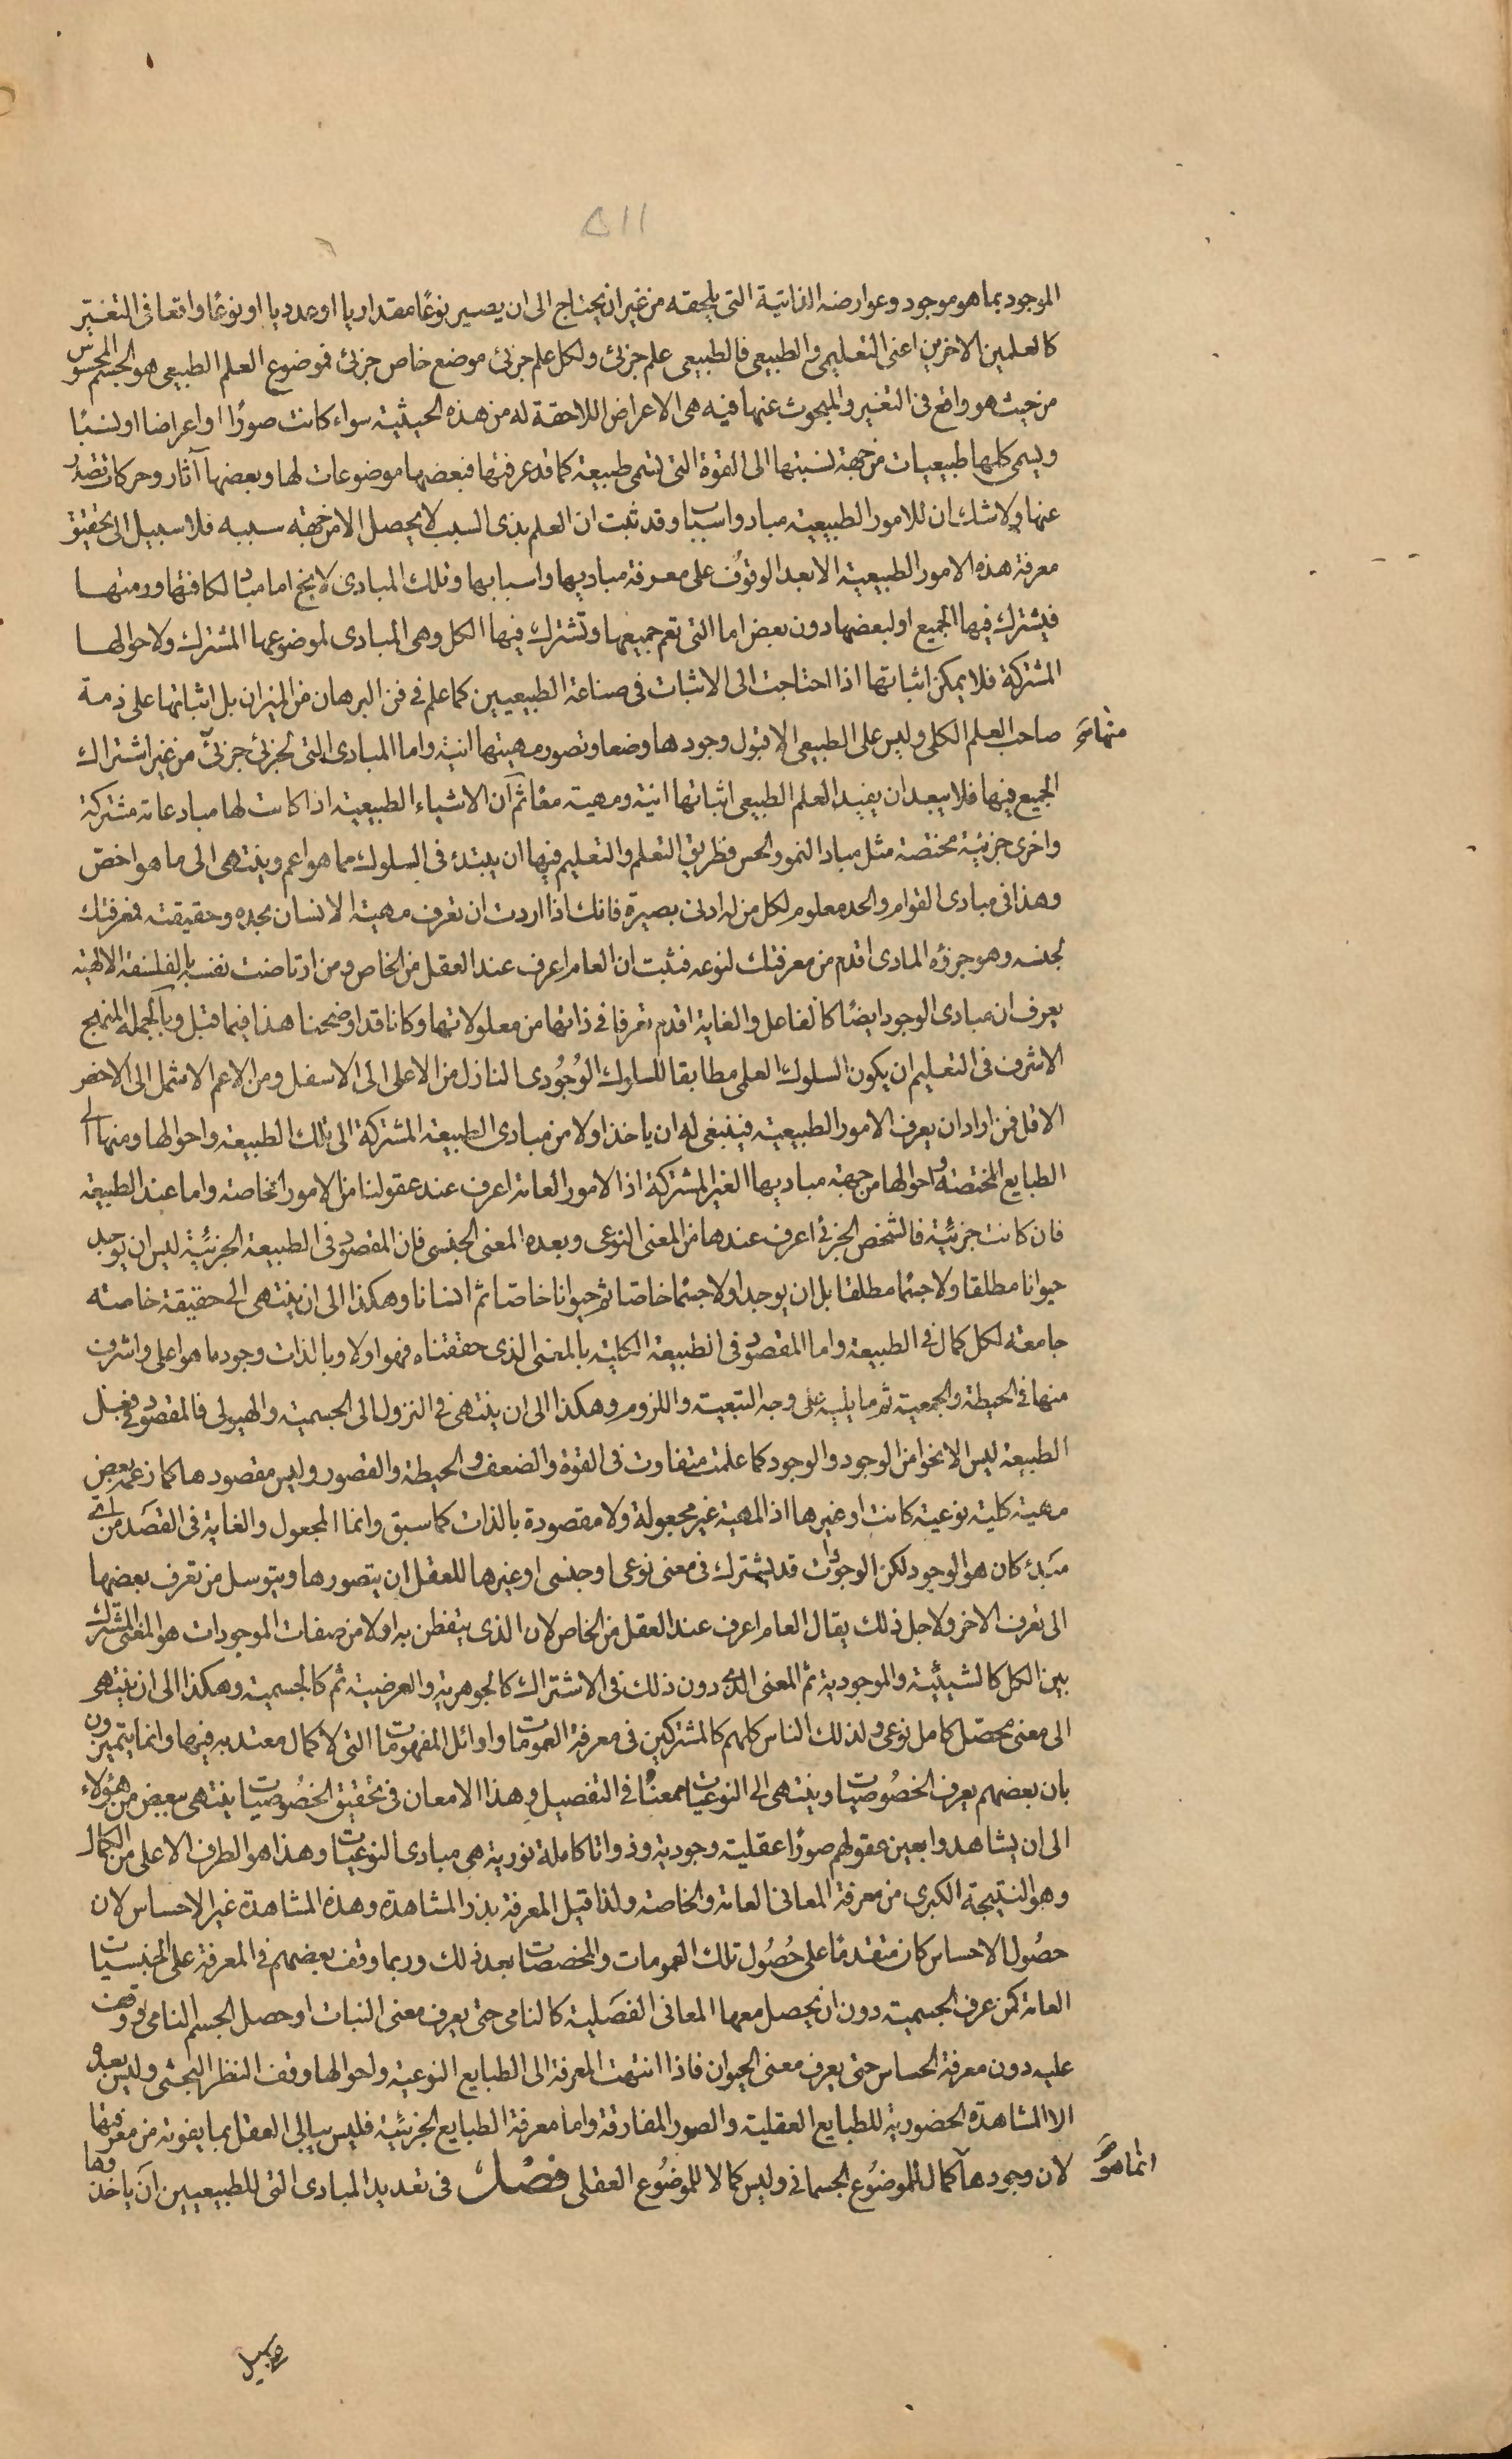 ٥١١
الموجود بما هو موجود وعوارضه الذاتية التى يلحقه من غير ان يحتاج الى ان يصير نوعًا مقداريا او عدديا او نوعًا واقعا فى التغير
كالعلمين الاخرين اعنى التعليمى والطبيعى فالطبيعى علم جزئى ولكل علم جزئى موضع خاص جزئى فموضوع العلم الطبيعى هو الجسم المحسوس
من حيث هو واقع فى التغير والمبحوث عنها فيه هى الاعراض اللاحقة له من هذه الحيثية سواء كانت صورًا او اعراضا او نسبًا
ويسمى كلها طبيعيات من جهة نسبتها الى القوة التى تسمى طبيعة كما قد عرفتها فبعضها موضوعات لها وبعضها آثار وحركات تصدر
عنها ولا شك ان للامور الطبيعية مباد واسبابا وقد ثبت ان العلم بذى السبب لا يحصل الا من جهة سببه فلا سبيل الى تحقيق
معرفة هذه الامور الطبيعية الا بعد الوقوف على معرفة مباديها واسبابها وتلك المبادى لا يخ اما مباد لكافتها ورمتها
فيشترك فيها الجميع او لبعضها دون بعض اما التى تعم جميعها وتشترك فيها الكل وهى المبادى لموضوعها المشترك ولاحوالها
المشتركة فلا يمكن اثباتها اذا احتاجت الى الاثبات فى صناعة الطبيعيين كما علم فى فن البرهان من الميزان بل اثباتها على ذمة
صاحب العلم الكلى وليس على الطبيعى الا قبول وجودها وضعا وتصور مهيتها انية واما المبادى التى لجزئى جزئى من غير اشتراك
منها مؤ
الجميع فيها فلا يبعد ان يفيد العلم الطبيعى اثباتها انية ومهية معًا ثم ان الاشياء الطبيعية اذا كانت لها مباد عامة مشتركة
واخرى جزئية مختصة مثل مباد النمو والحس فطريق التعلم والتعليم فيها ان يبتدء فى السلوك مما هو اعم وينتهى الى ما هو اخص
وهذا فى مبادى القوام والحد معلوم لكل من له ادنى بصيرة فانك اذا اردت ان تعرف مهية الانسان بحده وحقيقته فمعرفتك
لجنسه وهو جزؤه المادى اقدم من معرفتك لنوعه فثبت ان العام اعرف عند العقل من الخاص ومن ارتاضت نفسه بالفلسفة الالهية
يعرف ان مبادى الوجود ايضًا كالفاعل والغاية اقدم تعرفا فى ذاتها من معلولاتها وكانا قد اوضحنا هذا فيما قبل وبالجملة المنهج
الاشرف فى التعليم ان يكون السلوك العلمى مطابقا للسلوك الوجودى النازل من الاعلى الى الاسفل ومن الاعم الاشمل الى الاخص
الاقل فمن اراد ان يعرف الامور الطبيعية فينبغى له ان ياخذ اولا من مبادى الطبيعة المشتركة الى تلك الطبيعة واحوالها ومنها الى
الطبايع المختصة واحوالها من جهة مباديها الغير المشتركة اذ الامور العامة اعرف عند عقولنا من الامور الخاصة واما عند الطبيعة
فان كانت جزئية فالشخص الجزئى اعرف عندها من المعنى النوعى وبعده المعنى الجنسى فان المقصود فى الطبيعة الجزئية ليس ان يوجد
حيوانا مطلقا ولا جسما مطلقا بل ان يوجد اولا جسما خاصا ثم حيوانا خاصا ثم انسانا وهكذا الى ان ينتهى الى حقيقة خاصة
جامعة لكل كمال فى الطبيعة واما المقصود فى الطبيعة الكلية بالمعنى الذى حققناه فهو اولا وبالذات وجود ما هو اعلى واشرف
منها فى الحيطة والجمعية ثم ما يليه على وجه التبعية واللزوم وهكذا الى ان ينتهى فى النزول الى الجسمية والهيولى فالمقصود فى فعل
الطبيعة ليس الا نحوا من الوجود والوجود كما علمت متفاوت فى القوة والضعف والحيطة والقصور وليس مقصودها كما زعمه بعض
مهية كلية نوعية كانت او غيرها اذ المهية غير مجعولة ولا مقصودة بالذات كما سبق وانما المجعول والغاية فى القصد من اى
مبدء كان هو الوجود لكن الوجودات قد يشترك فى معنى نوعى او جنسى او غيرها للعقل ان يتصورها ويتوسل من تعرف بعضها
الى تعرف الاخر ولاجل ذلك يقال العام اعرف عند العقل من الخاص لان الذى يتفطن به اولا من صفات الموجودات هو المعنى المشترك
بين الكل كالشيئية والموجودية ثم المعنى الذى دون ذلك فى الاشتراك كالجوهرية والعرضية ثم كالجسمية وهكذا الى ان ينتهى
الى معنى محصل كامل نوعى ولذلك الناس كلهم كالمشتركين فى معرفة العمومات واوائل المفهومات التى لا كمال معتد به فيها وانما يتميزون
بان بعضهم يعرف الخصوصيات وينتهى الى النوعيات ممعنًا فى التفصيل وهذا الامعان فى تحقيق الخصوصيات ينتهى ببعض من هؤلاء
الى ان يشاهدوا بعين عقولهم صورًا عقلية وجودية وذواتا كاملة نورية هى مبادى النوعيات وهذا هو الطرف الاعلى من الكمال
وهو النتيجة الكبرى من معرفة المعانى العامة والخاصة ولذا قيل المعرفة بذر المشاهدة وهذه المشاهدة غير الاحساس لان
حصول الاحساس كان متقدمًا على حصول تلك العمومات والمخصصات بعد ذلك وربما وقف بعضهم فى المعرفة على الجنسيات
العامة كمن عرف الجسمية دون ان يحصل معها المعانى الفصلية كالنامى حتى يعرف معنى النبات او حصل الجسم النامى ووقف
عليه دون معرفة الحساس حتى يعرف معنى الحيوان فاذا انتهت المعرفة الى الطبايع النوعية واحوالها وقف النظر البحثى وليس بعده
الا المشاهدة الحضورية للطبايع العقلية والصور المفارقة واما معرفة الطبايع الجزئية فليس يبالى العقل بما يفوته من معرفتها
لان وجودها كمال للموضوع الجسمانى وليس كمالا للموضوع العقلى فصل فى تعديد المبادى التى للطبيعيين ان ياخذوها
انما هو